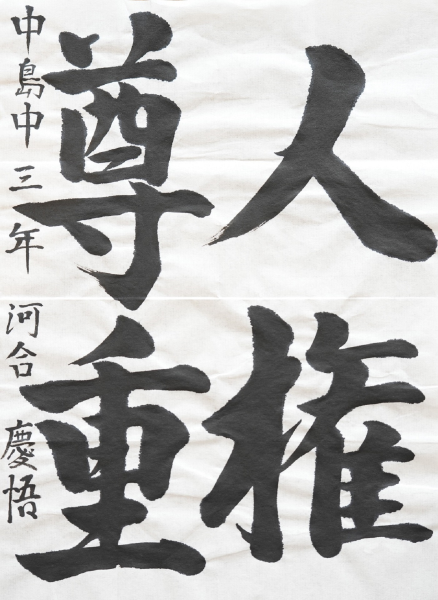 人権
尊重
中島中三年 河合慶悟